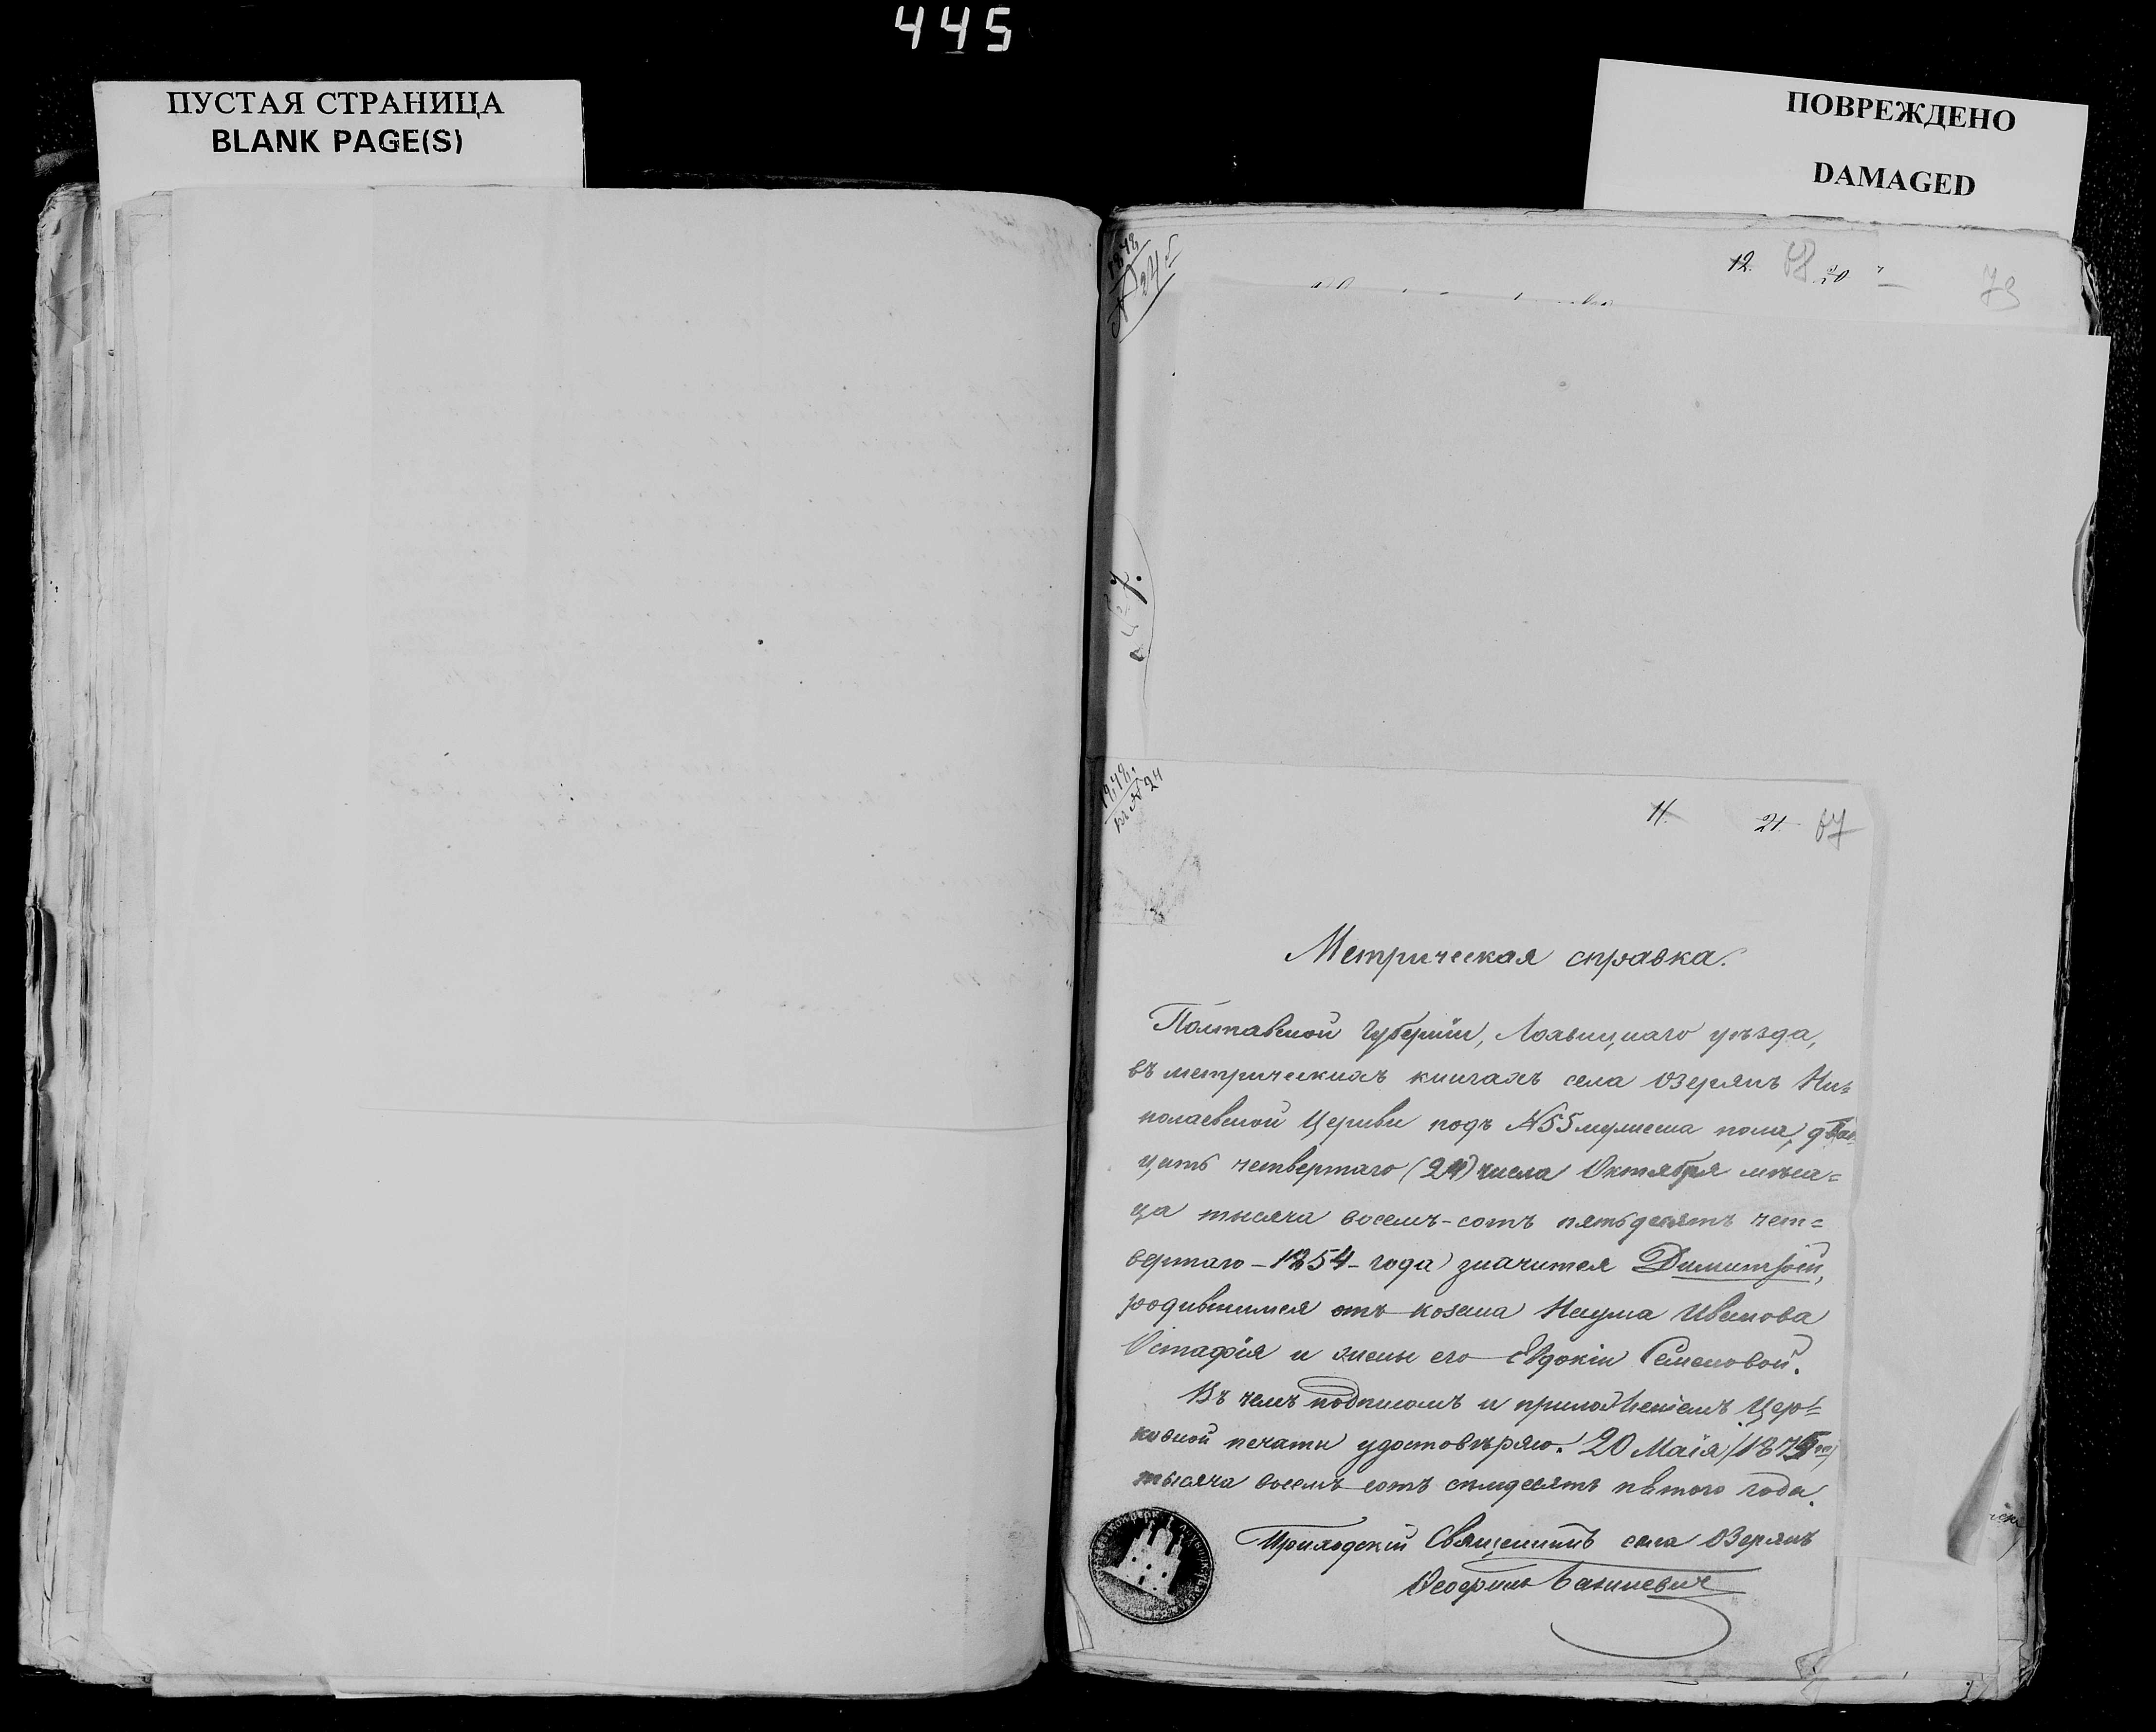 445
ПУСТАЯ СТРАНИЦА
BLANK PAGE(S)
ПОВРЕЖДЕНО
DAMAGED
12. 68 20
73
11. 21 67
Метрическая справка.
Полтавской Губерніи, Лохвицкаго уѣзда,
въ метрическихъ книгахъ села Озерянъ Ни-
колаевской Церкви подъ №55 мужеска пола, двад-
цать четвертаго (24) числа Октября мѣся=
ца тысяча восемъ-сотъ пятьдесятъ чет=
вертаго - 1854 - года значится Димитрій,
родившимся отъ козака Наума Иванова
Остафія и жены его Евдокіи Семеновой.
Въ чемъ подписомъ и приложеніемъ Цер=
ковной печати удостовѣряю. 20 Маія (1875
тысяча восемъ сотъ семдесятъ пятого года.
Приходскій Священникъ села Озерянъ